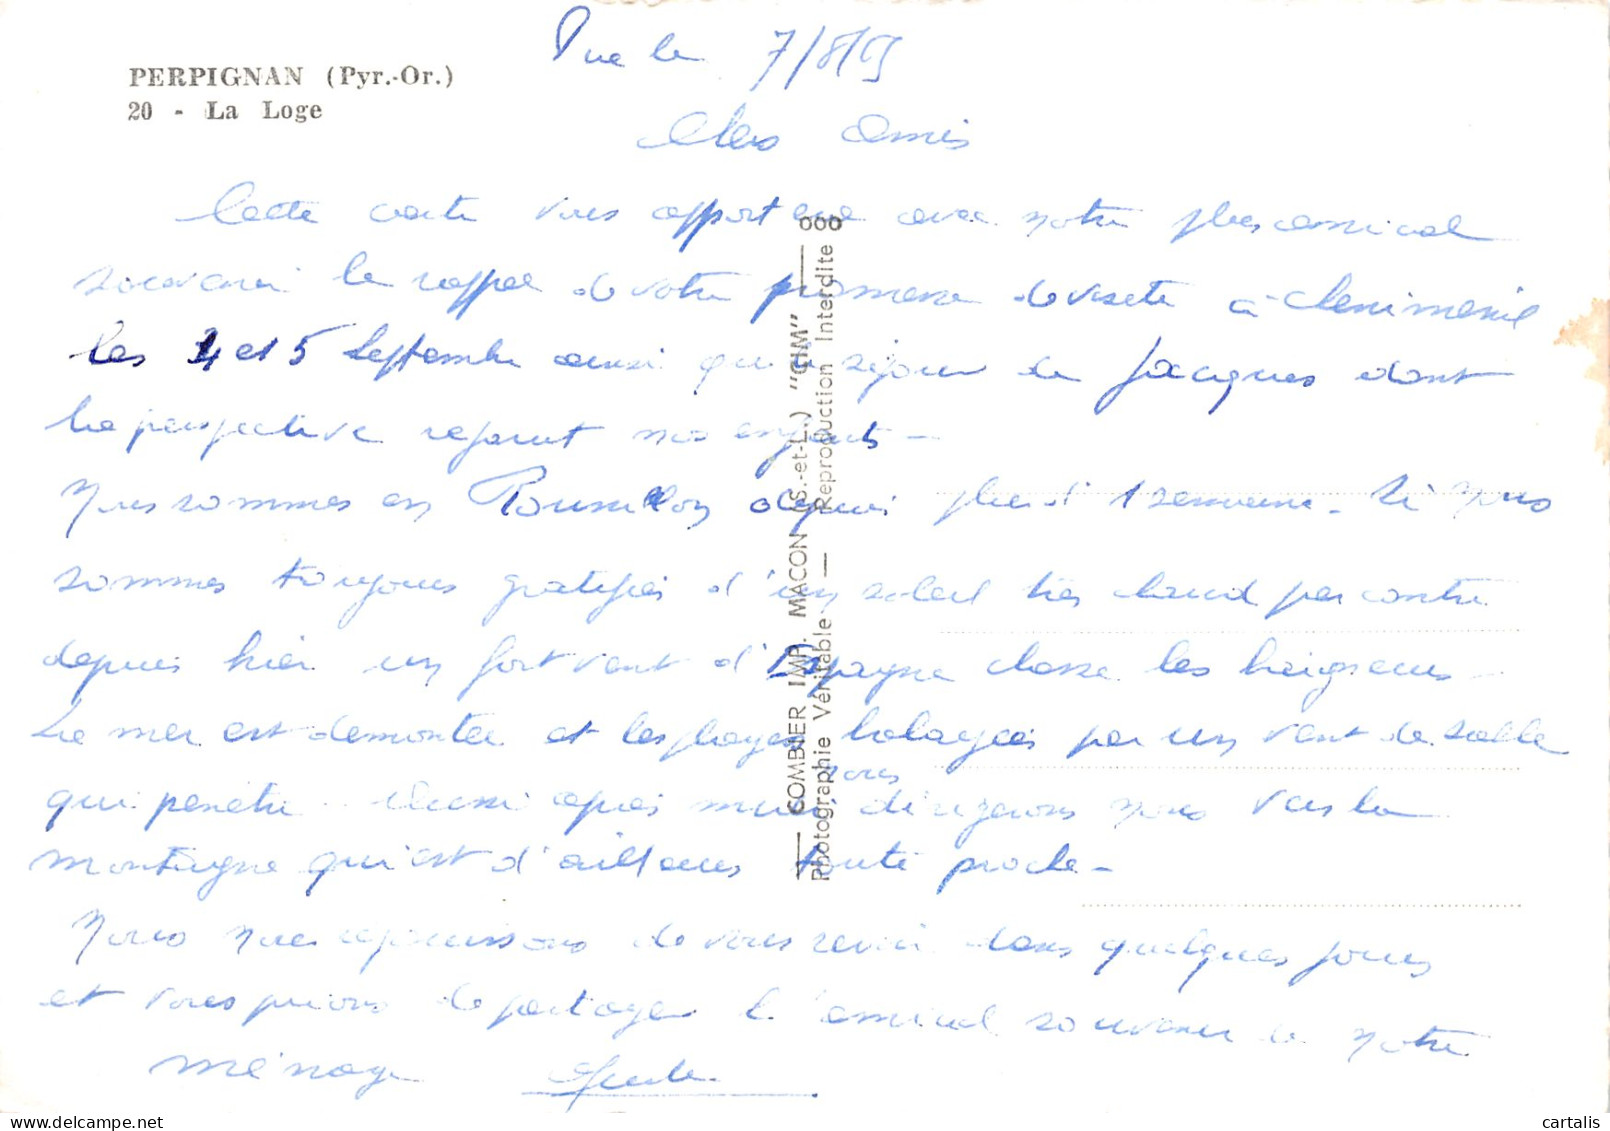 PERPIGNAN (Pyr.-Or.)
20 - La Loge
le 7/8/
Chers Amis
Cette carte vous apportera avec notre plus amical
souvenir le rappel de votre promesse de visite à
les 4 et 5 Septembre ainsi que séjour de Jacques dont
la perspective réjouit nos enfants -
Nous sommes en Roussillon depuis plus d' 1 semaine. Si nous
sommes toujours gratifiés d'un soleil très chaud par contre
depuis hier un fort vent d'Espagne chasse les baigneurs -
La mer est démontée et les plages balayées par un vent de sable
qui pénètre. Aussi après midi nous dirigerons nous vers la
montagne qui est d'ailleurs toute proche -
Nous nous réjouissons de vous revoir dans quelques jours
et vous prions de partager l'amical souvenir de notre
ménage
COMBIER IMP. MACON (S.-et-L.) "CIM"
Photographie Véritable — Reproduction Interdite
cartalis
delcampe.net